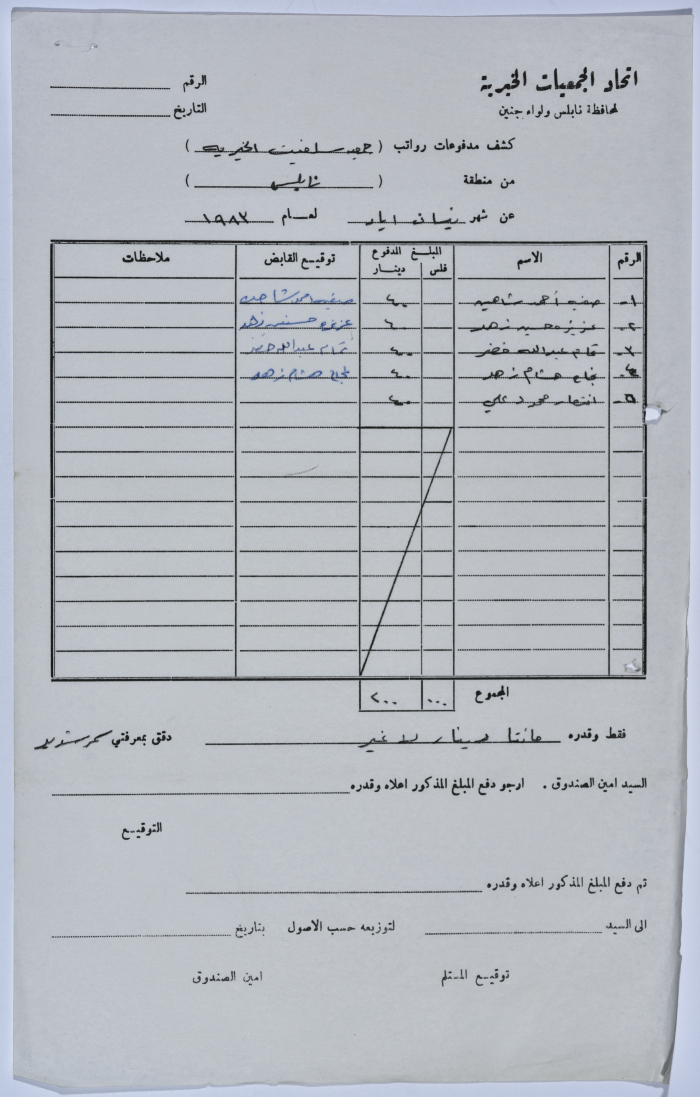 اتحاد الجمعيات الخيرية
لمحافظة نابلس ولواء جنين
الرقم
التاريخ
كشف مدفوعات رواتب ( جمعية سلفيت الخيرية )
من منطقة ( نابلس )
عن شهر نيسان ايار لعام ١٩٨٣
الرقم الاسم المبلغ المدفوع فلس دينار توقيع القابض ملاحظات
١- صفيه أحمد شاهين ٤٠ صفيه احمد شاهين
٢- عزيزه حسين زهد ٤٠ عزيزه حسين زهد
٣- تمام عبدالله خضر ٤٠ تمام عبدالله خضر
٤- نجاح هشام زهد ٤٠ نجاح هشام زهد
٥- انتصار محمود علي ٤٠
المجموع ٠٠٠ ٢٠٠
فقط وقدره مائتا دينار لا غير دقق بمعرفتي
السيد امين الصندوق . ارجو دفع المبلغ المذكور اعلاه وقدره
التوقيع
تم دفع المبلغ المذكور اعلاه وقدره
الى السيد لتوزيعه حسب الاصول بتاريخ
توقيع المستلم امين الصندوق